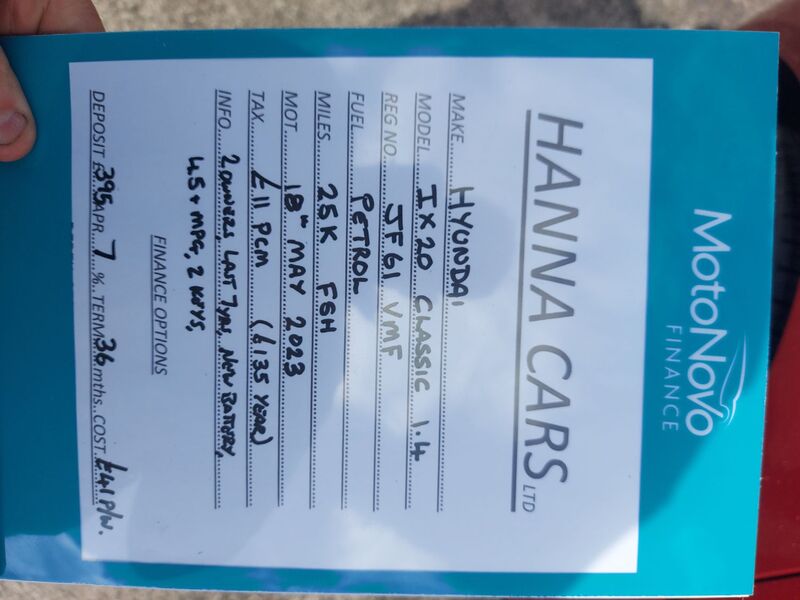 MotoNovo
FINANCE
HANNA CARS LTD
MAKE HYUNDAI
MODEL IX20 CLASSIC 1.4
REG NO. JF61 VMF
FUEL PETROL
MILES 25K FSH
MOT 18TH MAY 2023
TAX. £11 PCM (£135 YEAR)
INFO 2 OWNERS, LAST 7YRS, NEW BATTERY,
45+ MPG, 2 KEYS,
FINANCE OPTIONS
DEPOSIT £395 APR 7 %. TERM 36 mths.. COST £41 P/W.